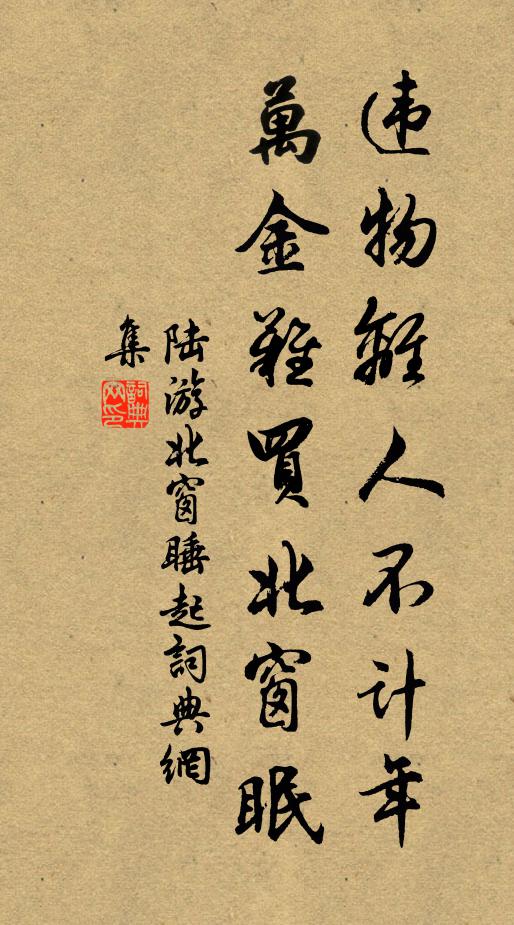 违物離人不计年
萬金難買北窗眠
陆游北窗睡起詞典網
集
詞典
网印